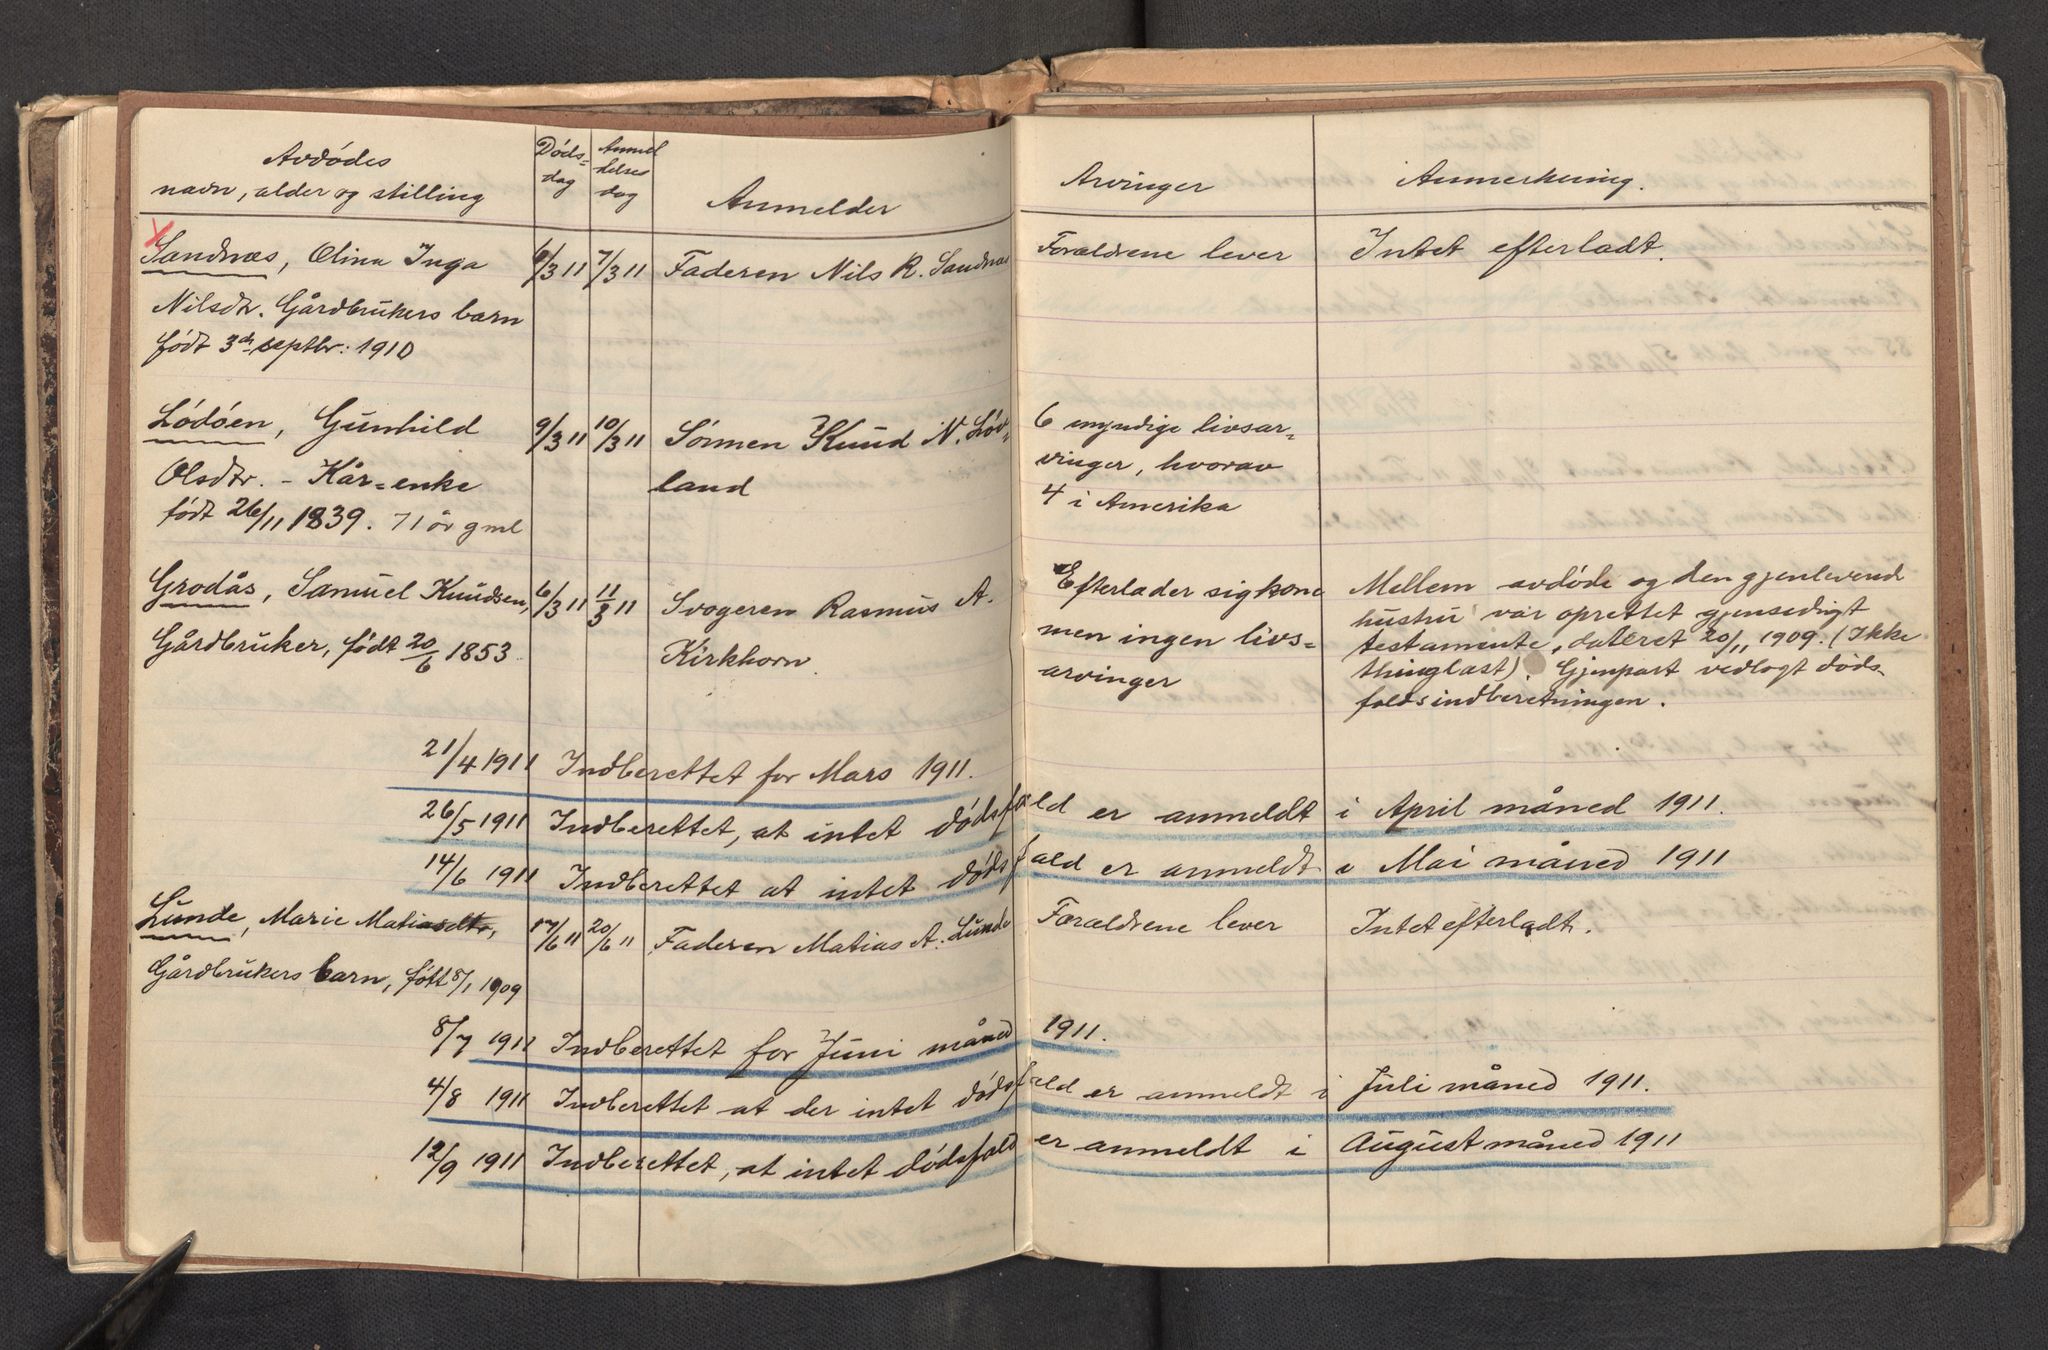 Avdødes
navn, alder og stilling
Døds-
dag
Anmel
delses
dag
Anmelder
Arvinger
Anmerkning.
Sandnæs, Olina Inga
Nilsdtr. Gårdbrukers barn
født 3de septbr: 1910
6/3 11
7/3 11
Faderen Nils R. Sandnæs
Forældrene lever
Intet efterladt.
Lødøen, Gunhild
Olsdtr. - Kår-enke
født 26/11 1839. 71 år gml
9/3 11
10/3 11
Sønnen Knud N. Løv-
land
6 myndige livsar-
vinger, hvorav
4 i Amerika
Grodås, Samuel Knudsen,
Gårdbruker, født 20/6 1853
6/3 11
11/3 11
Svogeren Rasmus A.
Kirkhorn
Efterlader sig kone
men ingen livs-
arvinger
Mellem avdøde og den gjenlevende
hustru var oprettet gjensedigt
testamente, dateret 20/11 1909. (Ikke
thinglæst). Gjenpart vedlagt døds-
faldsindberetningen.
21/4 1911 Indberettet for Mars 1911.
26/5 1911 Indberettet, at intet dødsfald er anmeldt i April måned 1911.
14/6 1911 Indberettet at intet dødsfald er anmeldt i Mai måned 1911
Lunde, Marie Matiasdtr,
Gårdbrukers barn, født 8/1 1909
17/6 11
20/6 11
Faderen Matias A. Lunde
Forældrene lever
Intet efterladt.
8/7 1911 Indberettet for Juni måned 1911.
4/8 1911 Indberettet at der intet dødsfald er anmeldt i Juli måned 1911.
12/9 1911 Indberettet, at intet dødsfald er anmeldt i August måned 1911